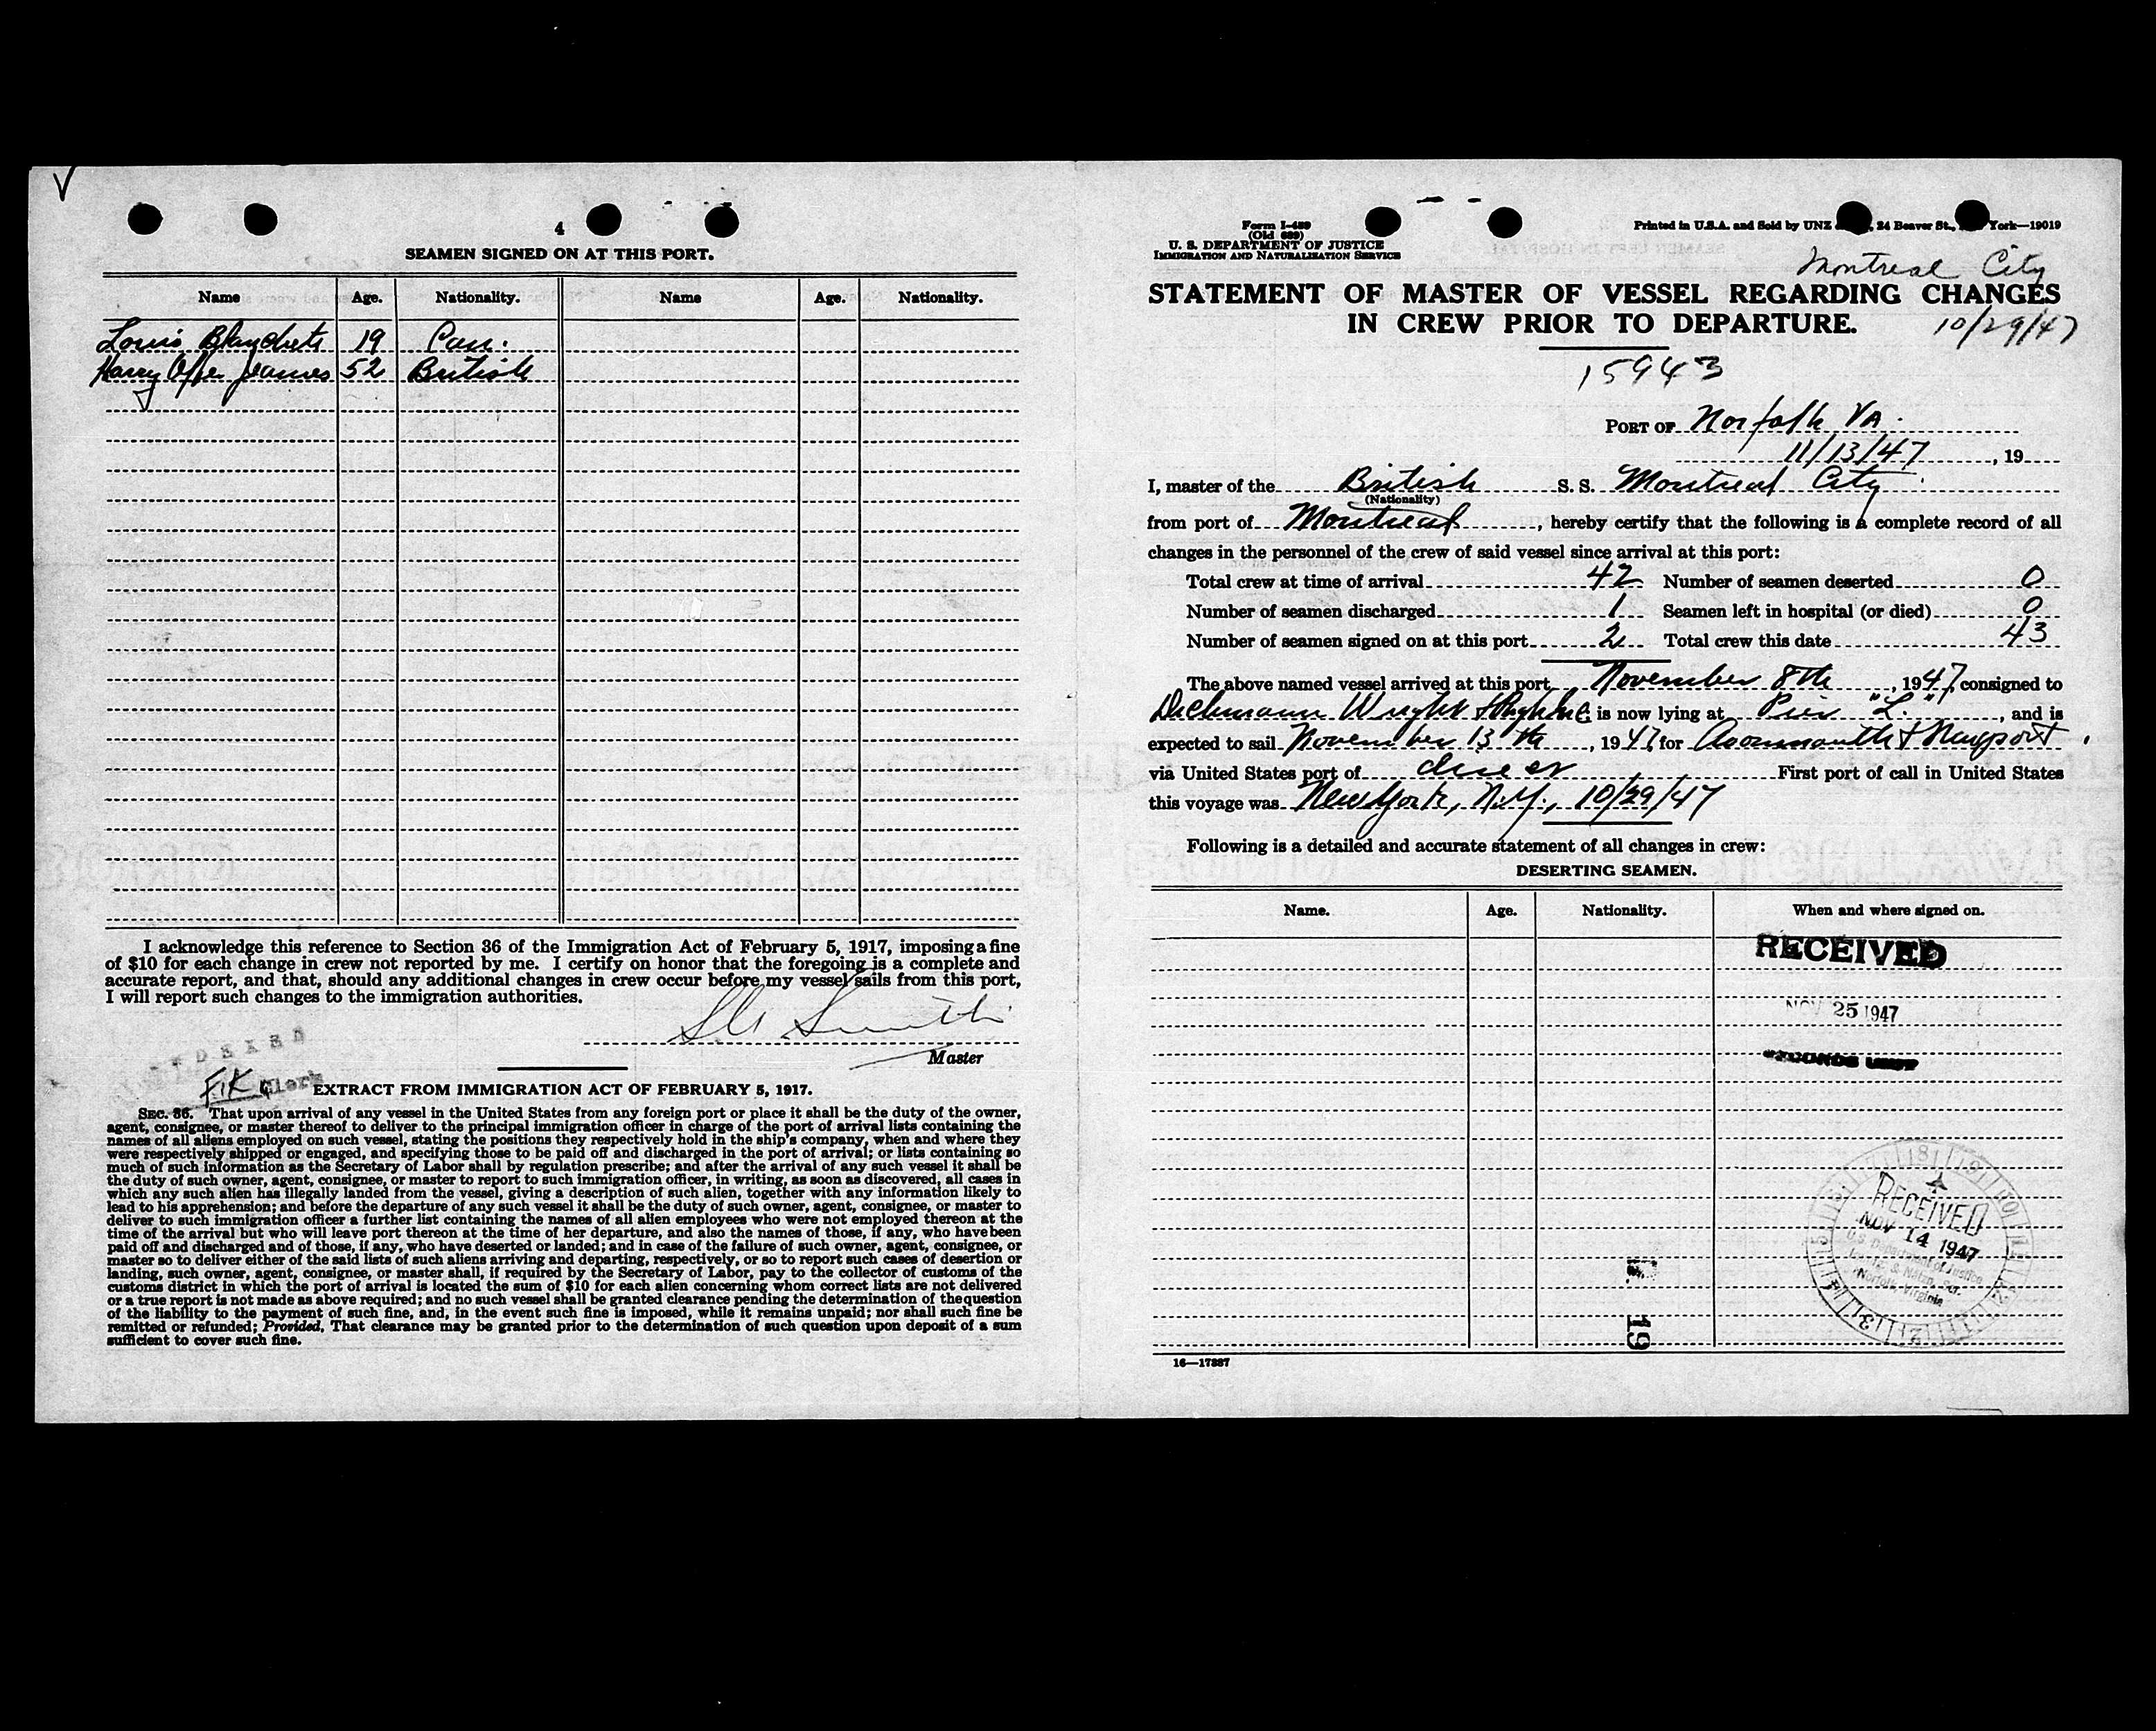 4
SEAMEN SIGNED ON AT THIS PORT.
Name Age. Nationality. Name Age. Nationality.
Louis Blanchete 19 Can.
Harry Offer Jeames 52 British
I acknowledge this reference to Section 36 of the Immigration Act of February 5, 1917, imposing a fine
of $10 for each change in crew not reported by me. I certify on honor that the foregoing is a complete and
accurate report, and that, should any additional changes in crew occur before my vessel sails from this port,
I will report such changes to the immigration authorities.
Smith
Master
INDEXED
Clerk
EXTRACT FROM IMMIGRATION ACT OF FEBRUARY 5, 1917.
SEC. 36. That upon arrival of any vessel in the United States from any foreign port or place it shall be the duty of the owner,
agent, consignee, or master thereof to deliver to the principal immigration officer in charge of the port of arrival lists containing the
names of all aliens employed on such vessel, stating the positions they respectively hold in the ship's company, when and where they
were respectively shipped or engaged, and specifying those to be paid off and discharged in the port of arrival; or lists containing so
much of such information as the Secretary of Labor shall by regulation prescribe; and after the arrival of any such vessel it shall be
the duty of such owner, agent, consignee, or master to report to such immigration officer, in writing, as soon as discovered, all cases in
which any such alien has illegally landed from the vessel, giving a description of such alien, together with any information likely to
lead to his apprehension; and before the departure of any such vessel it shall be the duty of such owner, agent, consignee, or master to
deliver to such immigration officer a further list containing the names of all alien employees who were not employed thereon at the
time of the arrival but who will leave port thereon at the time of her departure, and also the names of those, if any, who have been
paid off and discharged and of those, if any, who have deserted or landed; and in case of the failure of such owner, agent, consignee, or
master so to deliver either of the said lists of such aliens arriving and departing, respectively, or so to report such cases of desertion or
landing, such owner, agent, consignee, or master shall, if required by the Secretary of Labor, pay to the collector of customs of the
customs district in which the port of arrival is located the sum of $10 for each alien concerning whom correct lists are not delivered
or a true report is not made as above required; and no such vessel shall be granted clearance pending the determination of the question
of the liability to the payment of such fine, and, in the event such fine is imposed, while it remains unpaid; nor shall such fine be
remitted or refunded; Provided, That clearance may be granted prior to the determination of such question upon deposit of a sum
sufficient to cover such fine.
Form I-489
(Old 689)
U. S. DEPARTMENT OF JUSTICE
IMMIGRATION AND NATURALIZATION SERVICE
Printed in U.S.A. and Sold by UNZ 24 Beaver St., York—19019
Montreal City
STATEMENT OF MASTER OF VESSEL REGARDING CHANGES
IN CREW PRIOR TO DEPARTURE.
10/29/47
15943
PORT OF Norfolk VA.
11/13/47, 19
I, master of the British S. S. Montreal City
(Nationality)
from port of Montreal, hereby certify that the following is a complete record of all
changes in the personnel of the crew of said vessel since arrival at this port:
Total crew at time of arrival 42 Number of seamen deserted 0
Number of seamen discharged 1 Seamen left in hospital (or died) 0
Number of seamen signed on at this port 2 Total crew this date 43
The above named vessel arrived at this port November 8th, 1947, consigned to
Dichmann Wright & Pugh Inc is now lying at Pier "L.", and is
expected to sail November 13th, 1947, for Avonmouth & Newport
via United States port of direct First port of call in United States
this voyage was New York, N.Y., 10/29/47
Following is a detailed and accurate statement of all changes in crew:
DESERTING SEAMEN.
Name. Age. Nationality. When and where signed on.
RECEIVED
NOV 25 1947
RECORDS UNIT
RECEIVED
NOV 14 1947
U.S. Department of Justice
Norfolk, Virginia
19
16—17887